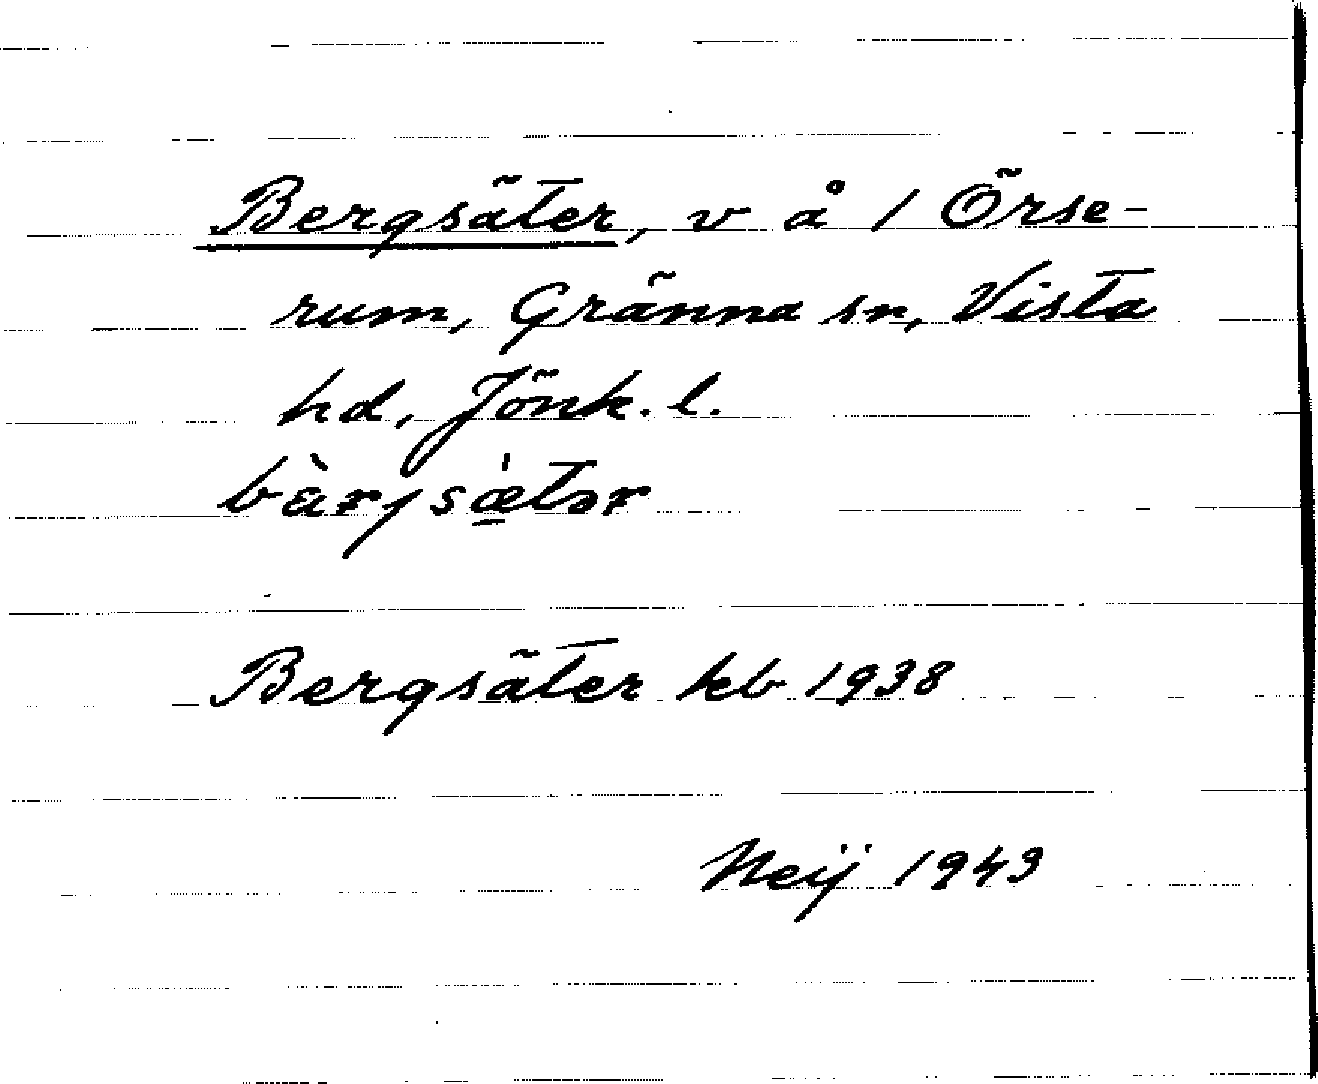 Bergsäter, v å 1 Örse-
rum, Gränna sn, Vista
hd, Jönk. l.
bærjsæ̀tər
Bergsäter kb 1938
Neij 1949